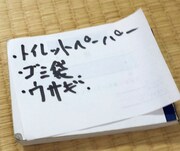 ・トイレットペーパー
・ゴミ袋
・ウサギ